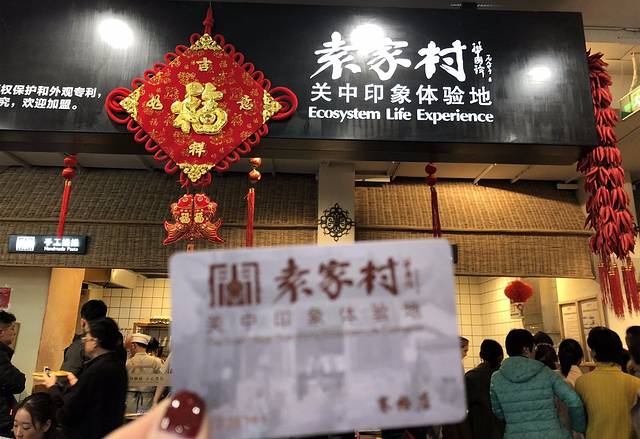 袁家村
关中印象体验地
Ecosystem Life Experience
权保护和外观专利，
究，欢迎加盟。
吉
如 福 意
祥
福 福
手工麻花
Handmade Pasta
袁家村
关中印象体验地